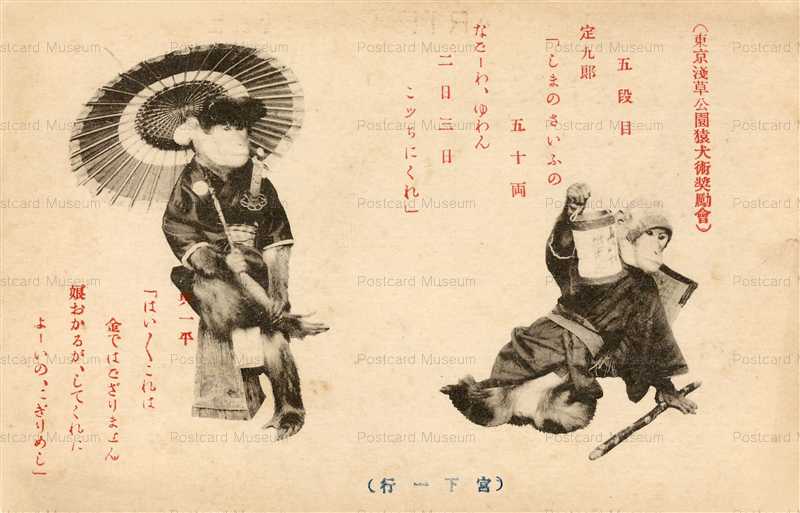 (東京淺草公園猿犬術奬勵會)
五段目
定九郎
「しまのさいふの
五十両
なぜーわ、ゆわん
二日三日
こッちにくれ」
一平
「はい〳〵これは
金ではござりません
娘おかるが、してくれた
よーいの、にぎりめし」
(宮下一行)
Postcard Museum